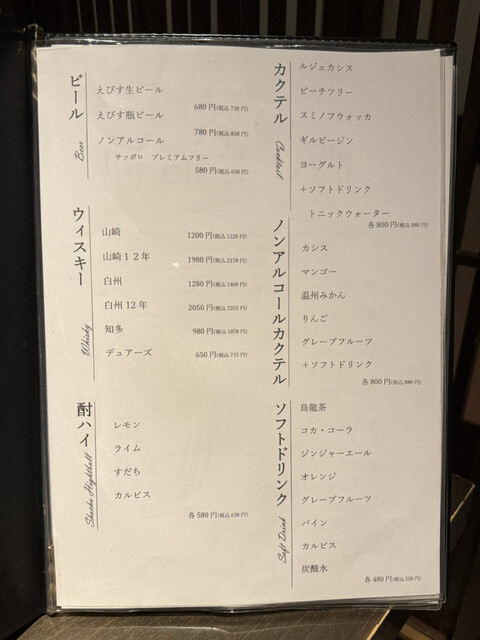 ビール
Beer
えびす生ビール
680円(税込738円)
えびす瓶ビール
780円(税込858円)
ノンアルコール
サッポロ プレミアムフリー
580円(税込638円)
ウィスキー
Whisky
山崎 1200円(税込1320円)
山崎12年 1980円(税込2178円)
白州 1280円(税込1408円)
白州12年 2050円(税込2255円)
知多 980円(税込1078円)
デュアーズ 650円(税込715円)
酎ハイ
レモン
ライム
すだち
カルピス
各580円(税込638円)
カクテル
Cocktail
ルジェカシス
ピーチツリー
スミノフウォッカ
ギルビージン
ヨーグルト
+ソフトドリンク
トニックウォーター
各800円(税込880円)
ノンアルコールカクテル
カシス
マンゴー
温州みかん
りんご
グレープフルーツ
+ソフトドリンク
各800円(税込880円)
ソフトドリンク
Soft Drink
烏龍茶
コカ・コーラ
ジンジャーエール
オレンジ
グレープフルーツ
パイン
カルピス
炭酸水
各480円(税込528円)